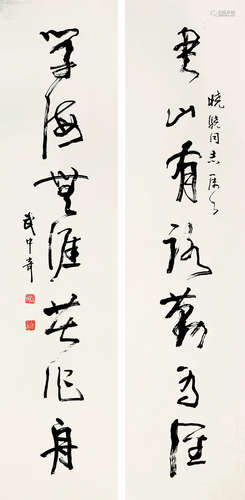 書山有路勤为径
同志属
学海無涯苦作舟
武中奇